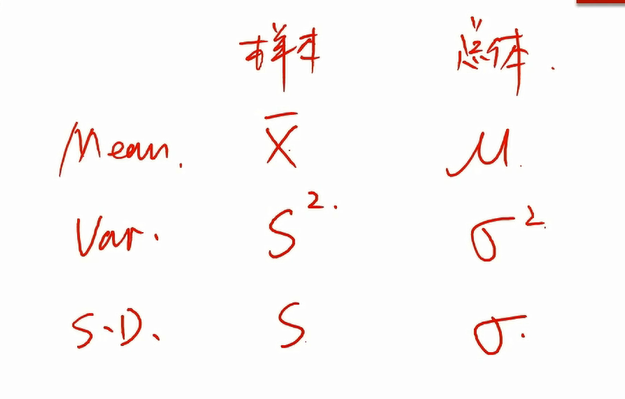 样本 总体.
Mean. X̄ μ.
Var. S². σ².
S.D. S σ.